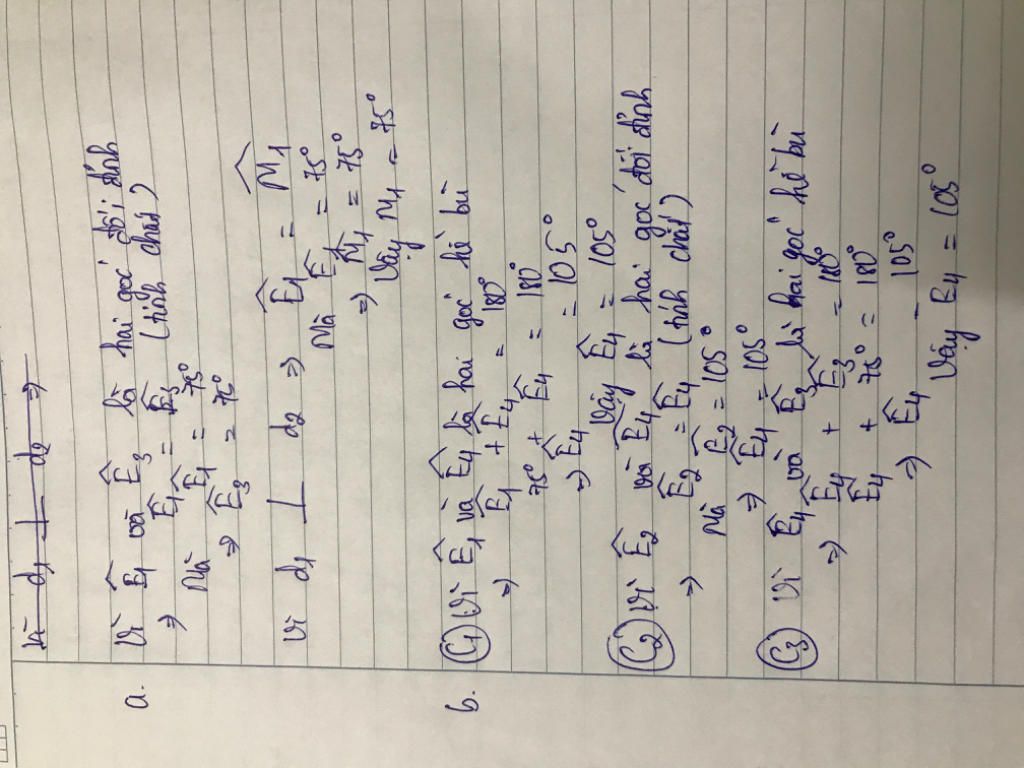 Vì d₁ ⊥ d₂ ⇒
a. Vì Ê₁ và Ê₃ là hai góc đối đỉnh
⇒ Ê₁ = Ê₃ (tính chất)
Mà Ê₁ = 75°
⇒ Ê₃ = 75°
Vì d₁ ⊥ d₂ ⇒ Ê₁ = M̂₁
Mà Ê₁ = 75°
⇒ M̂₁ = 75°
Vậy M₁ = 75°
b. C₁ Vì Ê₁ và Ê₄ là hai góc kề bù
⇒ Ê₁ + Ê₄ = 180°
75° + Ê₄ = 180°
⇒ Ê₄ = 105°
Vậy Ê₄ = 105°
C₂ Vì Ê₂ và Ê₄ là hai góc đối đỉnh
⇒ Ê₂ = Ê₄ (tính chất)
Mà Ê₂ = 105°
⇒ Ê₄ = 105°
C₃ Vì Ê₄ và Ê₃ là hai góc kề bù
⇒ Ê₄ + Ê₃ = 180°
Ê₄ + 75° = 180°
⇒ Ê₄ = 105°
Vậy E₄ = 105°